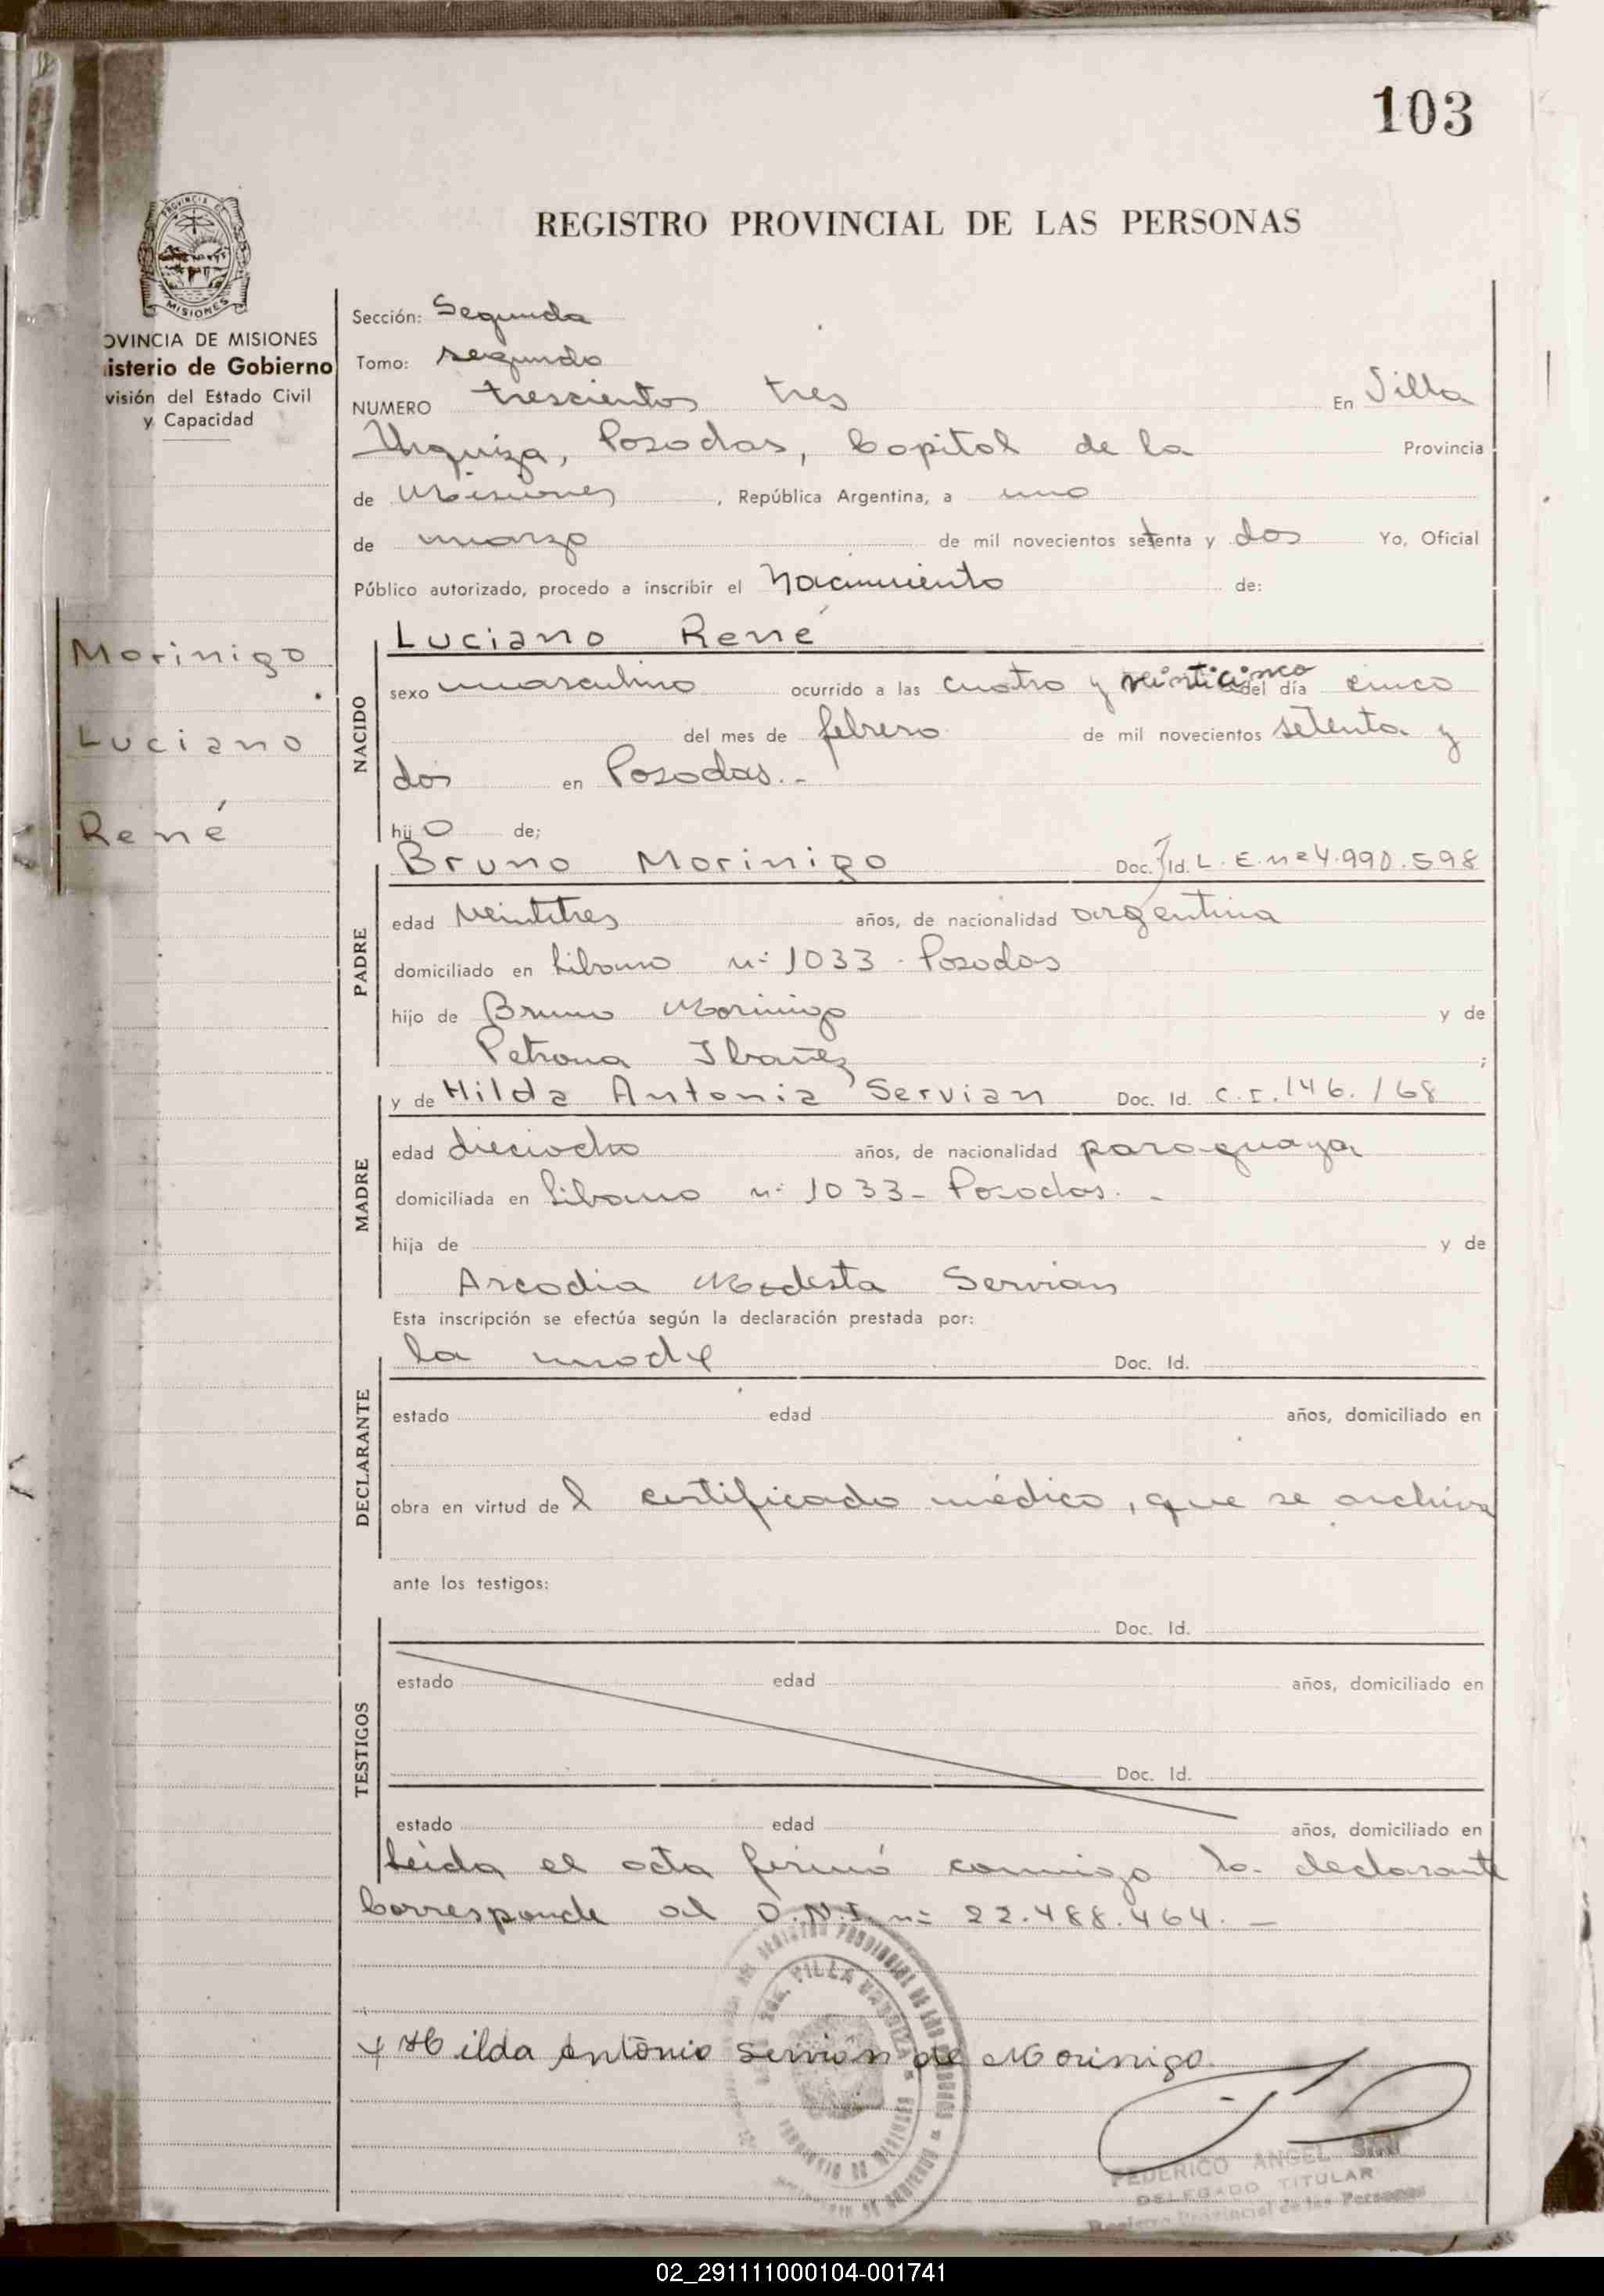 103
REGISTRO PROVINCIAL DE LAS PERSONAS
PROVINCIA DE
MISIONES
OVINCIA DE MISIONES
isterio de Gobierno
visión del Estado Civil
y Capacidad
Morinigo
Luciano
René
Sección: Segunda
Tomo: segundo
NUMERO trescientos tres En Villa
Urquiza, Posadas, Capital de la Provincia
de Misiones, República Argentina, a uno
de marzo de mil novecientos setenta y dos Yo, Oficial
Público autorizado, procedo a inscribir el Nacimiento de:
NACIDO
Luciano René
sexo masculino ocurrido a las cuatro y veinticinco del día cinco
del mes de febrero de mil novecientos setenta y
dos en Posadas.-
hijo de;
PADRE
Bruno Morinigo Doc. Id. L.E.nº 4.990.598
edad veintitres años, de nacionalidad argentina
domiciliado en Libano nº 1033 - Posadas
hijo de Bruno Morinigo y de
Petrona Ibañez ;
MADRE
y de Hilda Antonia Servian Doc. Id. C.I. 146.168
edad dieciocho años, de nacionalidad paraguaya
domiciliada en Libano nº 1033 - Posadas. -
hija de y de
Arcadia Modesta Servian
Esta inscripción se efectúa según la declaración prestada por:
DECLARANTE
la madre Doc. Id.
estado edad años, domiciliado en
obra en virtud del certificado médico, que se archiva
ante los testigos:
TESTIGOS
Doc. Id.
estado edad años, domiciliado en
Doc. Id.
estado edad años, domiciliado en
Leida el acta firmó conmigo la declarante
Corresponde al D.N.I. nº 22.488.464. -
VILLA URQUIZA
Hilda Antonia Servián de Morinigo
FEDERICO ANGEL
DELEGADO TITULAR
Registro Provincial de las Personas
02_291111000104-001741